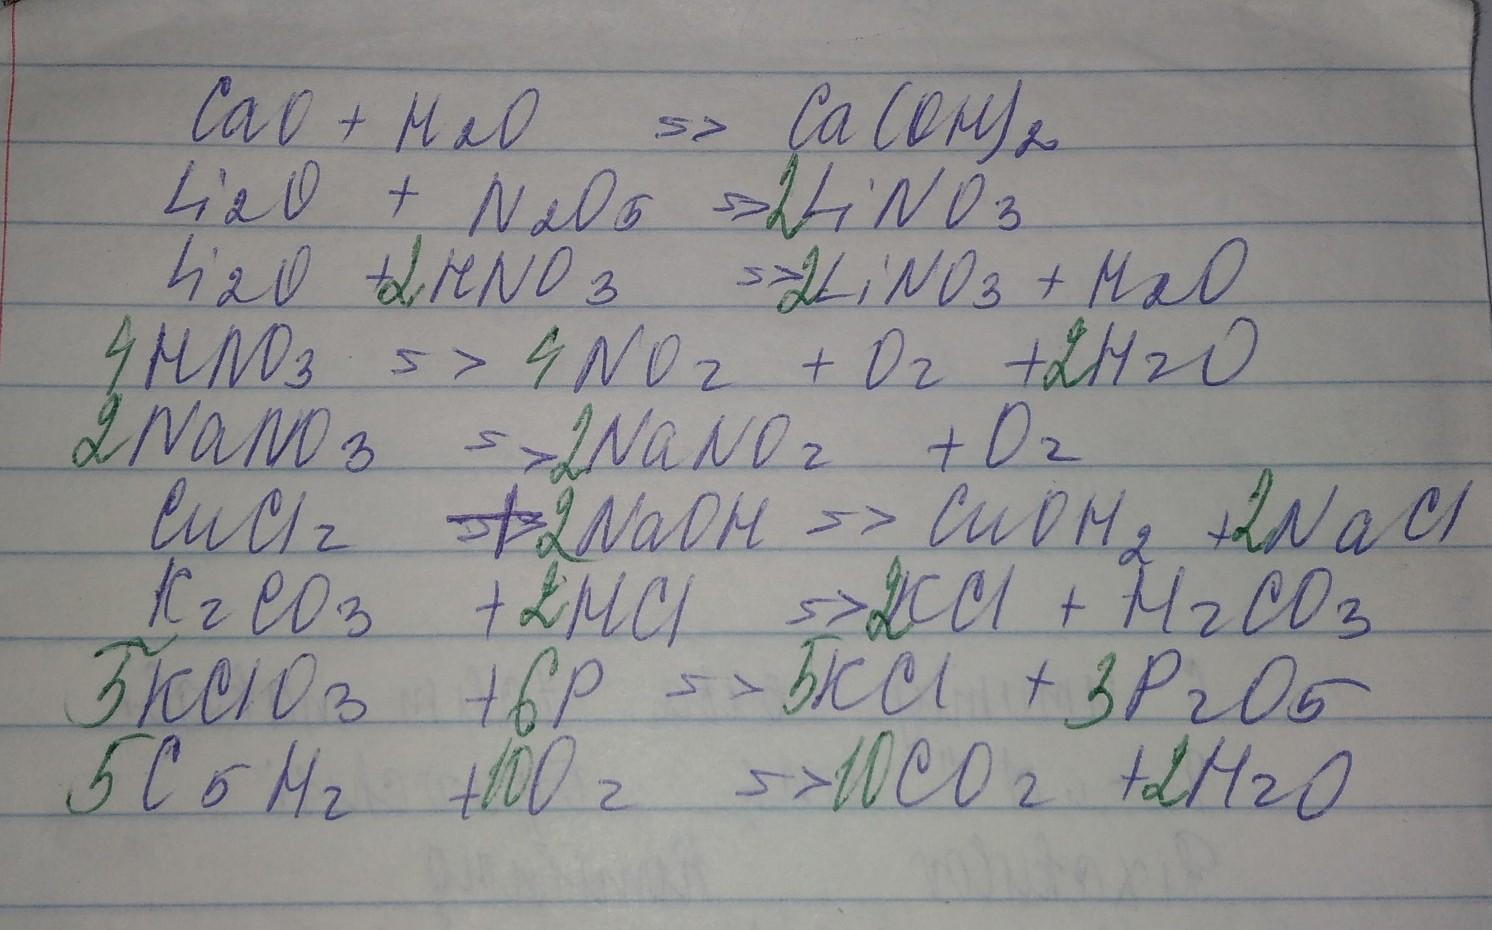 CaO + H2O => Ca(OH)2
Li2O + N2O5 => 2LiNO3
Li2O + 2HNO3 => 2LiNO3 + H2O
4HNO3 => 4NO2 + O2 + 2H2O
2NaNO3 => 2NaNO2 + O2
CuCl2 + 2NaOH => CuOH2 + 2NaCl
K2CO3 + 2HCl => 2KCl + H2CO3
5KClO3 + 6P => 5KCl + 3P2O5
5C5H2 + 10O2 => 10CO2 + 2H2O